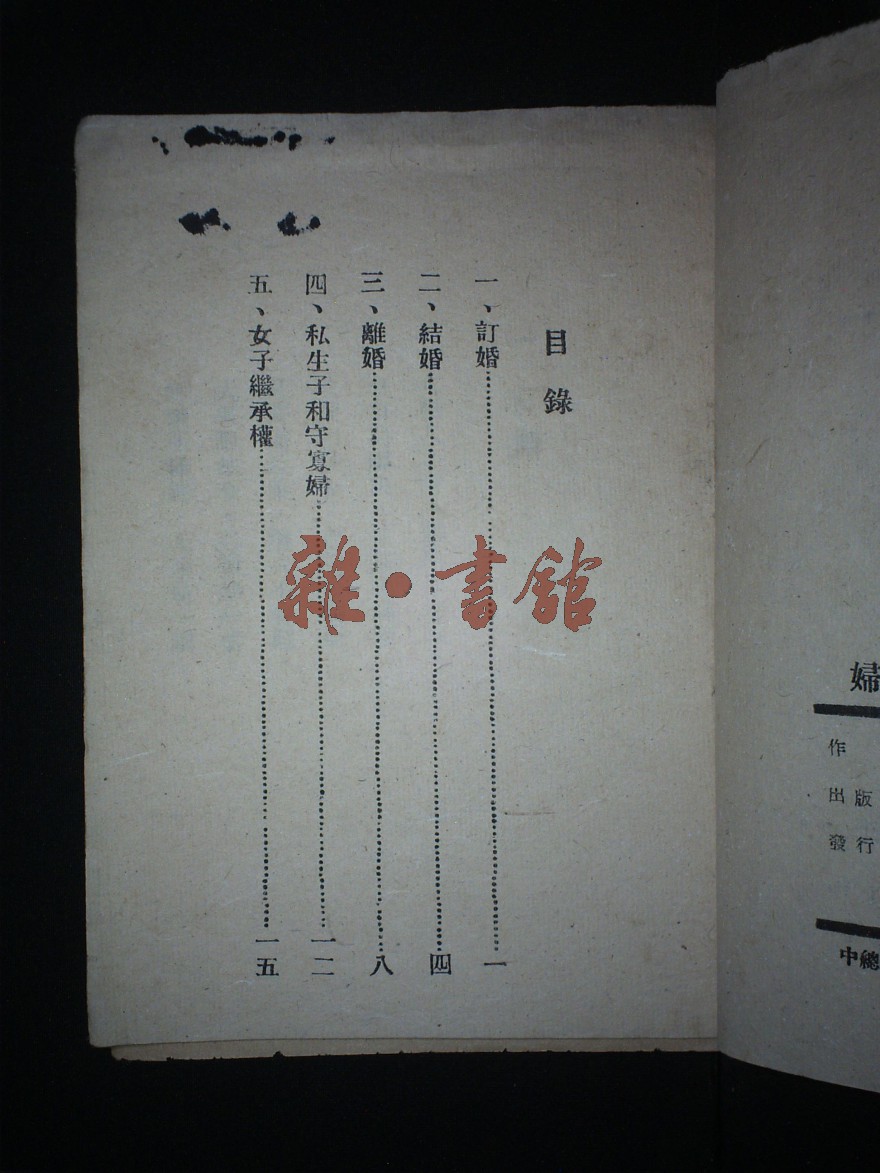 目錄
一、訂婚…………一
二、結婚…………四
三、離婚…………八
四、私生子和守寡婦…………一二
五、女子繼承權…………一五
雜·書館
婦
作
出版
發行
中總